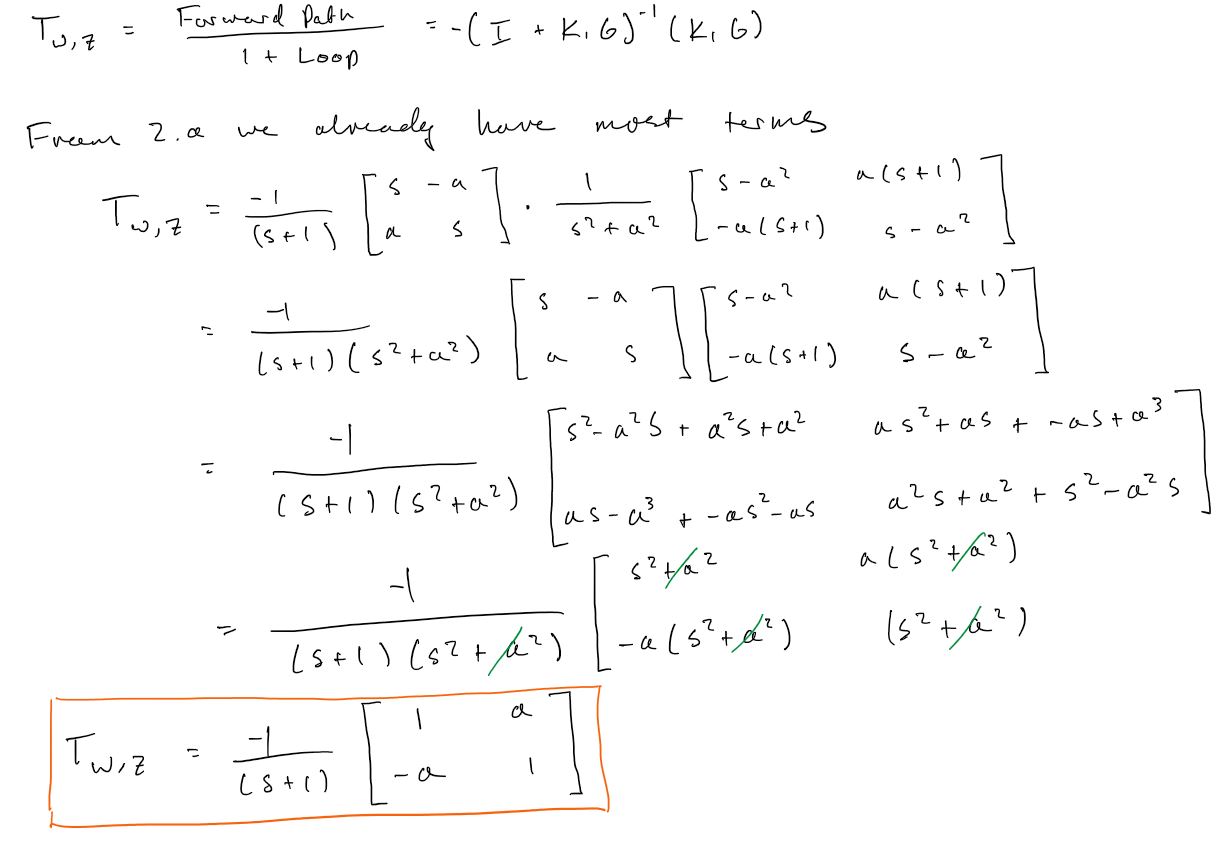 T_{w,z} = Forward Path / (1 + Loop) = -(I + K_1 G)^{-1} (K_1 G)
From 2.a we already have most terms
T_{w,z} = -1/(s+1) [s -a; a s] · 1/(s²+a²) [s-a² a(s+1); -a(s+1) s-a²]
= -1/((s+1)(s²+a²)) [s -a; a s] [s-a² a(s+1); -a(s+1) s-a²]
= -1/((s+1)(s²+a²)) [s²-a²s + a²s+a² as²+as + -as+a³; as-a³ + -as²-as a²s+a² + s²-a²s]
= -1/((s+1)(s²+a²)) [s²+a² a(s²+a²); -a(s²+a²) (s²+a²)]
T_{w,z} = -1/(s+1) [1 a; -a 1]